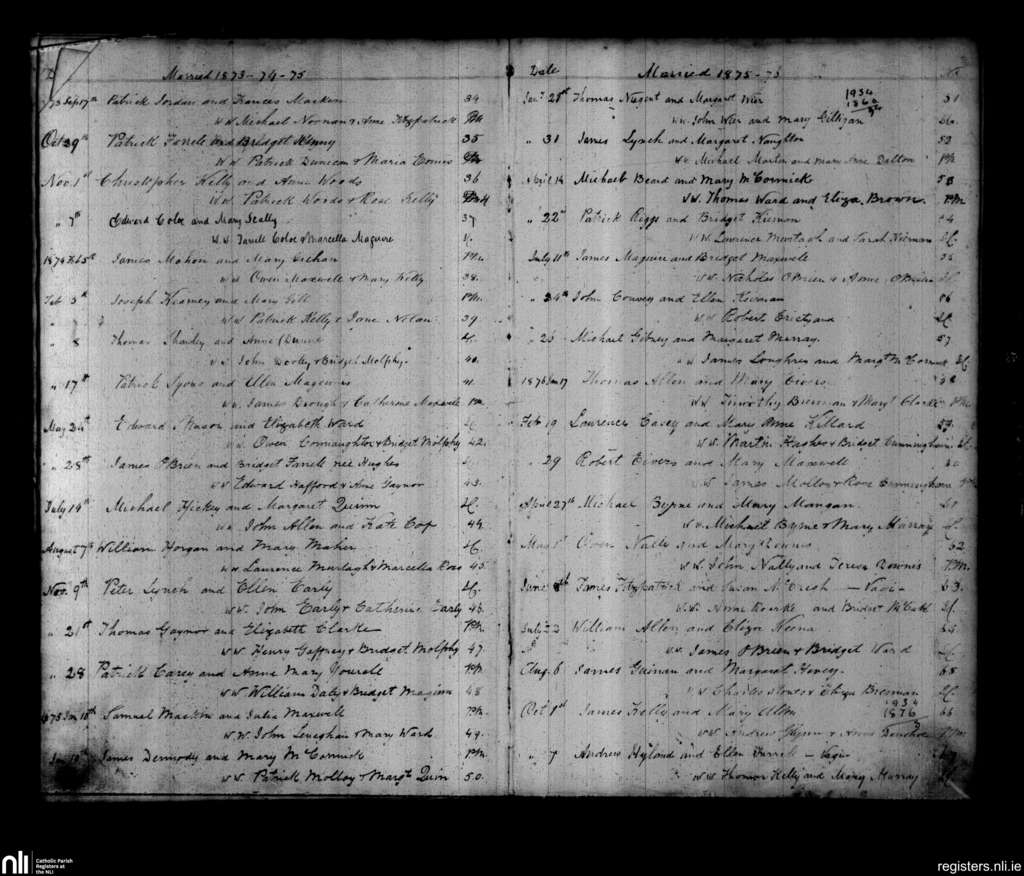 Married 1873-74-75
73 Sep 17th Patrick Jordan and Frances Macken 34
W W Michael Noonan & Anne Fitzpatrick P.M.
Oct 29th Patrick Farrell and Bridget Kenny 35
W W Patrick Duncan & Maria
Nov. 1st Christopher Kelly and Anne Woods 36
W W Patrick Woods & Rose Kelly
" 7th Edward Coloe and Mary Scally 37
W W Farrell Coloe & Marcella Maguire
1874 Feb 5th James Mahon and Mary
W W Owen Maxwell & Mary Kelly 38.
Feb 5th Joseph Kearney and Mary Gill P.M.
W W Patrick Kelly & Jane Nolan 39
" 8 Thomas and Anne Dunne
W W John Dooley & Bridget Molphy. 40.
" 17th Patrick Lyons and Ellen 41.
W W James & Catherine Maxwell P.M.
May 24th Edward and Elizabeth Ward
W W Owen Connaughton & Bridget Molphy 42.
" 28th James O'Brien and Bridget Farrell née Hughes
W W Edward Hafford & Anne Gaynor 43.
July 14th Michael Hickey and Margaret Quinn
W W John Allen and Kate Coy 44.
August 7th William Horgan and Mary Maher
W W Laurence Murtagh & Marcella Ross 45.
Nov. 9th Peter Lynch and Ellen Early
W W John Early & Catherine Early 46.
" 21st Thomas Gaynor and Elizabeth Clarke P.M.
W W Henry Gaffney & Bridget Molphy 47.
" 28 Patrick Carey and Anne Mary P.M.
W W William Daly & Bridget 48
1875 Jan 10th Samuel Macken and Julia Maxwell P.M.
W W John & Mary Ward 49.
James Dermody and Mary McCormick P.M.
W W Patrick Molloy & Margt Quin 50.
Date Married 1875-76 No
Jan. 28th Thomas Nugent and Margaret Weir 51
1934
1860
W W John Weir and Mary Gilligan
" 31 James Lynch and Margaret Naughton 52
W W Michael Martin and Mary Anne Dalton P.M.
April 14 Michael Beard and Mary McCormick 53
W W Thomas Ward and Eliza Brown. P.M.
" 22nd Patrick Riggs and Bridget Kiernan 54
W W Laurence Murtagh and Sarah Kiernan
July 11th James Maguire and Bridget Maxwell 55
W W Nicholas O'Brien & Anne O'Brien
" 24th John Convey and Ellen Kiernan 56
W W Robert and
" 25 Michael Gibney and Margaret Murray. 57
W W James Loughrey and Margt McCormick
1876 Jan 17 Thomas Allen and Mary Eivers 58
W W Timothy Brennan & Mary Clarke P.M.
Feb 19 Laurence Casey and Mary Anne Killard 59.
W W Martin Hughes & Bridget Cunningham
" 29 Robert Eivers and Mary Maxwell 60
W W James Molloy & Rose Cunningham
April 27th Michael Byrne and Mary Mangan. 61
W W Michael Byrne & Mary Murray
May 1st Owen Nally and Mary Downes 62
W W John Nally and Teresa Downes P.M.
June 8th James Fitzpatrick and Susan - Vagi - 63.
W W Anne Rourke and Bridget McCabe
July 22 William Allen and Eliza
W W James O'Brien & Bridget Ward
Aug. 6 James Guinan and Margaret Harvey.
W W Charles & Eliza Brennan
1934
1876
Oct 1st James Kelly and Mary Allen 66
W W Andrew Glynn & Anne
" 7 Andrew Hyland and Ellen - Vagi -
W W Thomas Kelly and Mary Murray
nli Catholic Parish
Registers at
the NLI
registers.nli.ie